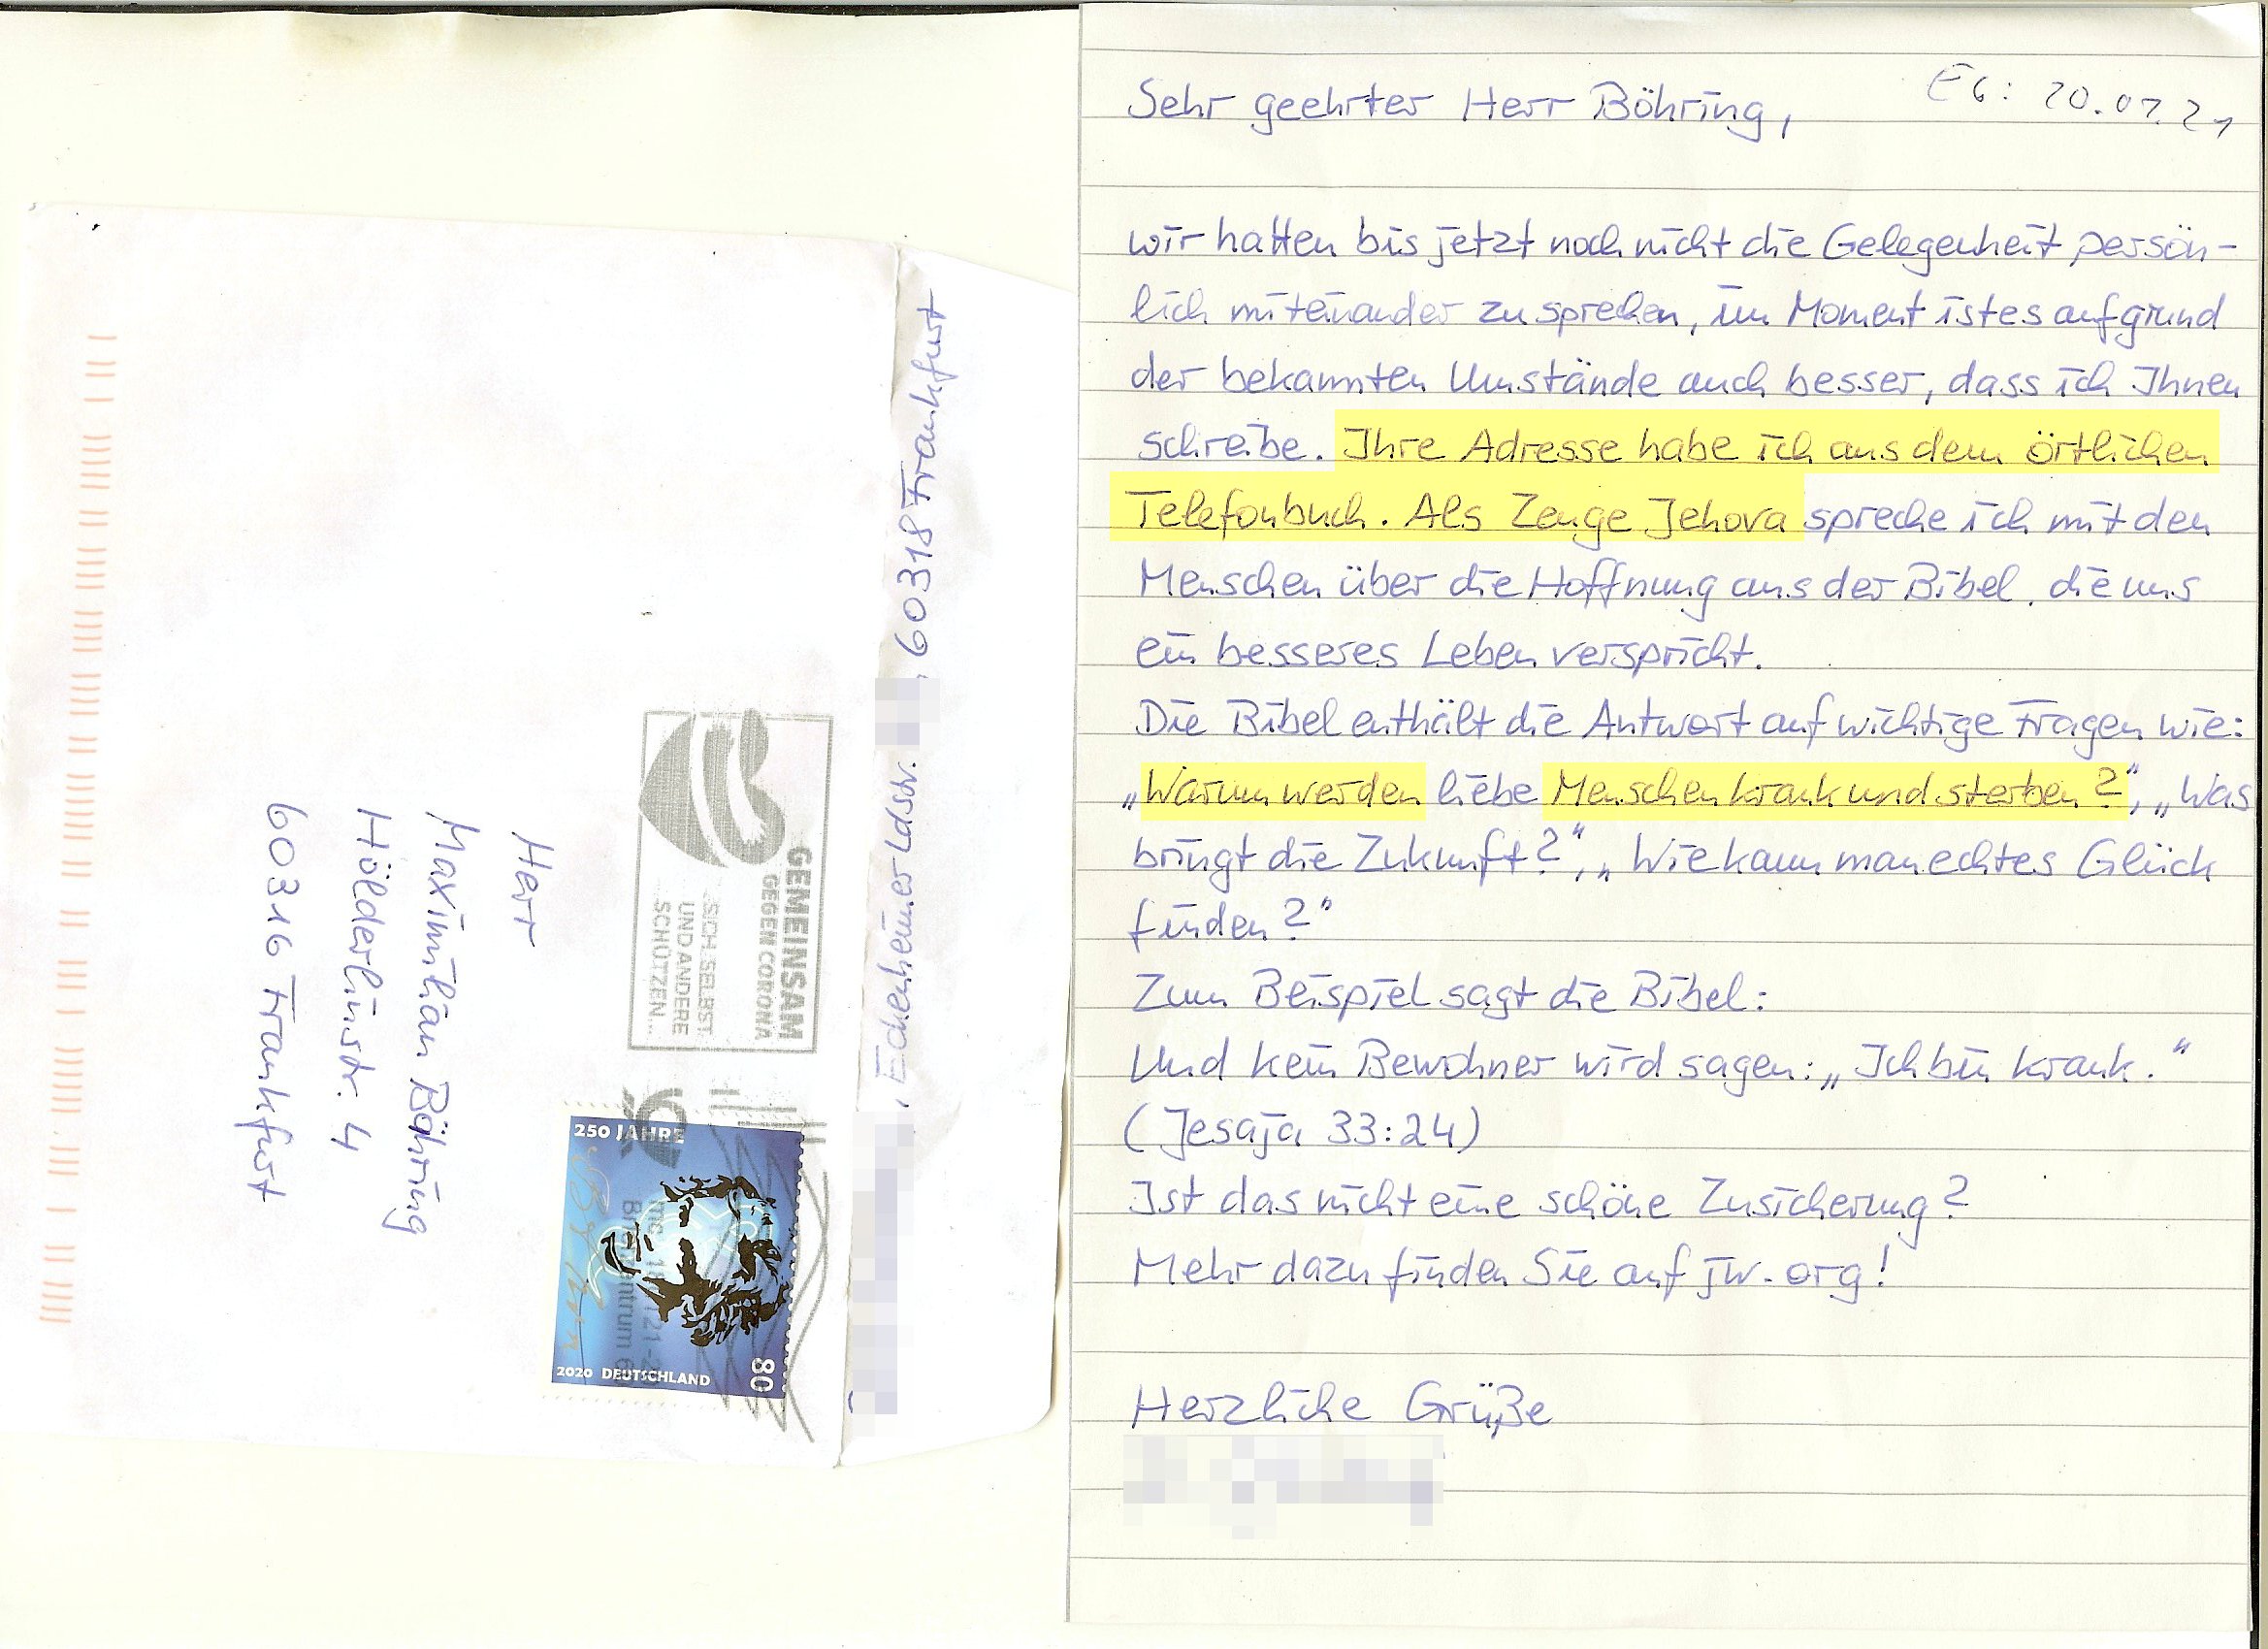 Sehr geehrter Herr Böhring,
EG: 20.01.21
wir hatten bis jetzt noch nicht die Gelegenheit persön-
lich miteinander zu sprechen, im Moment ist es aufgrund
der bekannten Umstände auch besser, dass ich Ihnen
schreibe. Ihre Adresse habe ich aus dem örtlichen
Telefonbuch. Als Zeuge Jehova spreche ich mit den
Menschen über die Hoffnung aus der Bibel, die uns
ein besseres Leben verspricht.
Die Bibel enthält die Antwort auf wichtige Fragen wie:
„Warum werden liebe Menschen krank und sterben?“, „Was
bringt die Zukunft?“, „Wie kann man echtes Glück
finden?“
Zum Beispiel sagt die Bibel:
Und kein Bewohner wird sagen: „Ich bin krank.“
(Jesaja 33:24)
Ist das nicht eine schöne Zusicherung?
Mehr dazu finden Sie auf jw.org!
Herzliche Grüße
, Eckenheimer Ldstr. , 60318 Frankfurt
GEMEINSAM
GEGEN CORONA
SICH SELBST
UND ANDERE
SCHÜTZEN...
Herr
Maximilian Böhring
Hölderlinstr. 4
60316 Frankfurt
250 JAHRE
80
2020 DEUTSCHLAND